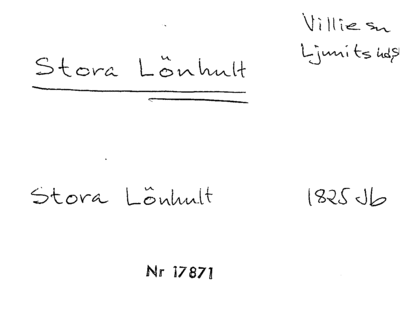 Villie sn
Ljunits hd
Stora Lönhult
Stora Lönhult 1825 Jb
Nr 17871